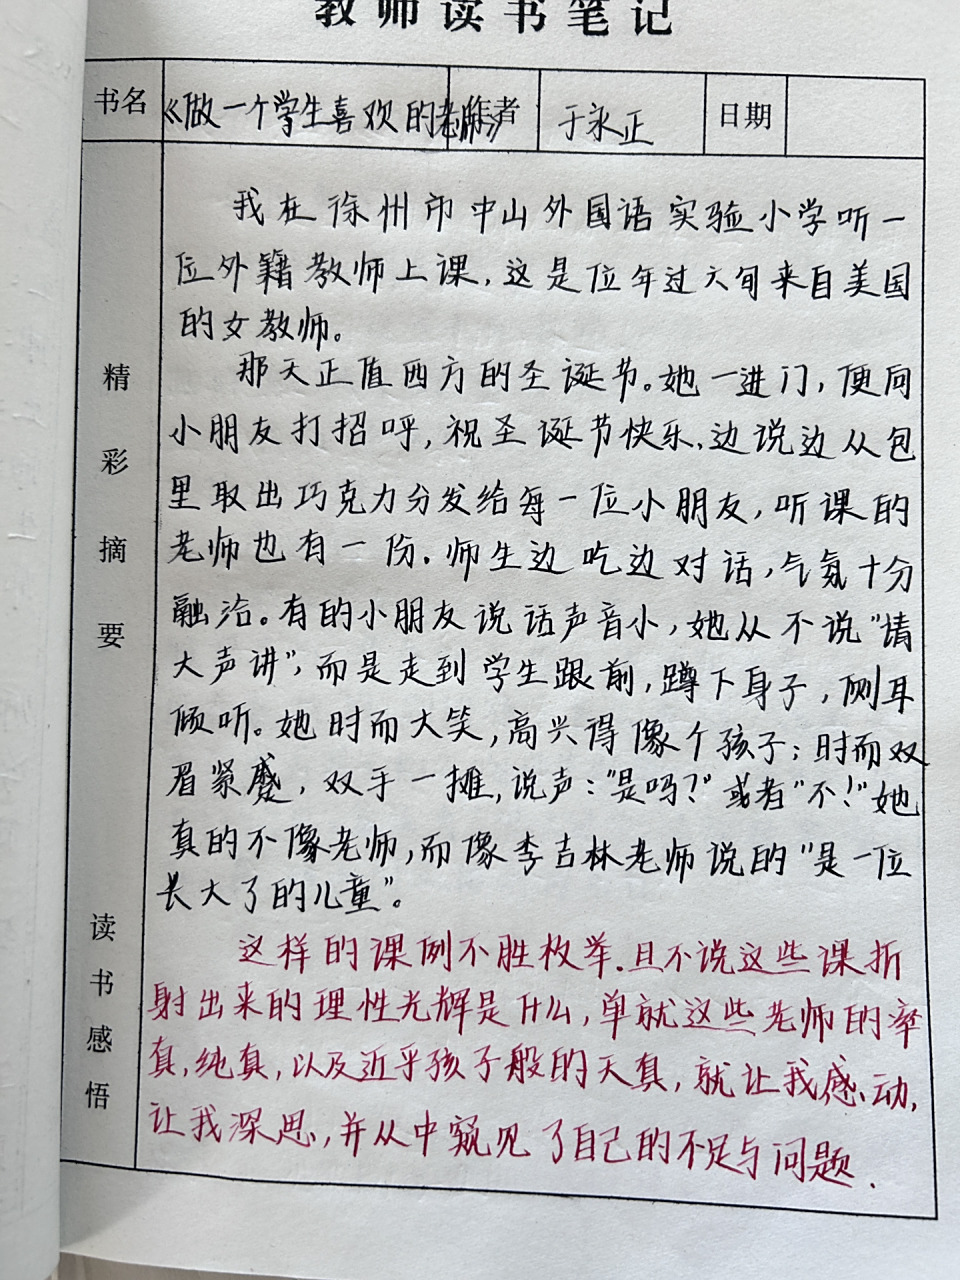 教师读书笔记
书名 《做一个学生喜欢的老师》 作者 于永正 日期
我在徐州市中山外国语实验小学听一
位外籍教师上课,这是位年过六旬来自美国
的女教师。
那天正值西方的圣诞节。她一进门,便同
小朋友打招呼,祝圣诞节快乐,边说边从包
里取出巧克力分发给每一位小朋友,听课的
老师也有一份.师生边吃边对话,气氛十分
融洽。有的小朋友说话声音小,她从不说"请
大声讲",而是走到学生跟前,蹲下身子,侧耳
倾听。她时而大笑,高兴得像个孩子;时而双
眉紧蹙,双手一摊,说声:"是吗?"或者"不!"她
真的不像老师,而像李吉林老师说的"是一位
长大了的儿童"。
精彩摘要
这样的课例不胜枚举.且不说这些课折
射出来的理性光辉是什么,单就这些老师的率
真,纯真,以及近乎孩子般的天真,就让我感动,
让我深思,并从中窥见了自己的不足与问题.
读书感悟